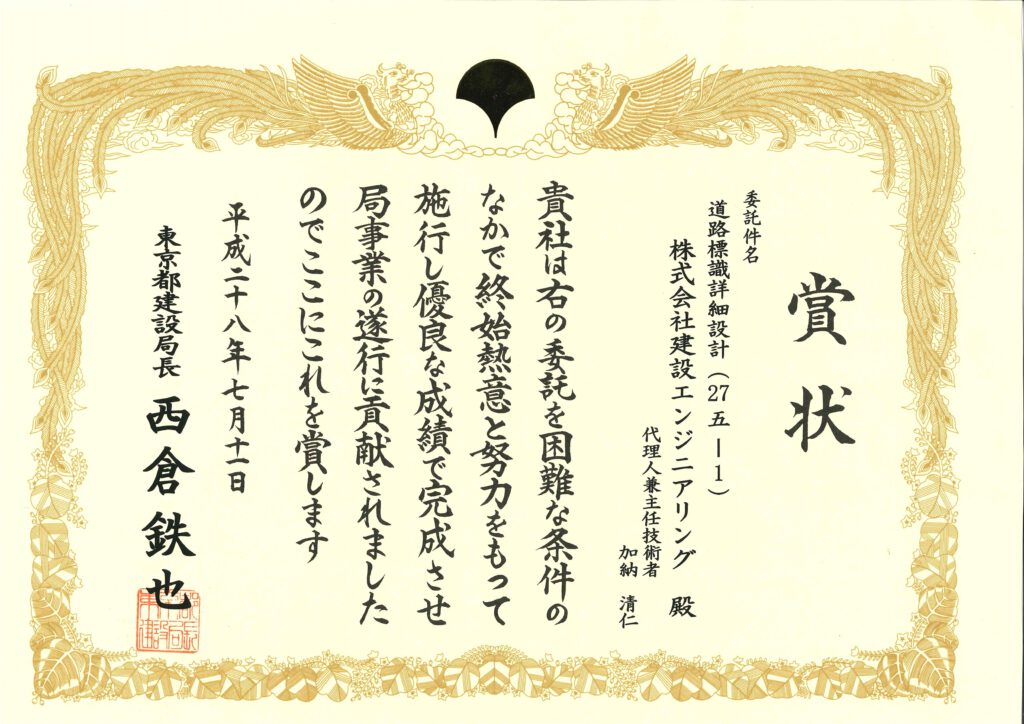 賞状
委託件名
道路標識詳細設計（27五ー1）
株式会社建設エンジニアリング 殿
代理人兼主任技術者
加納 清仁
貴社は右の委託を困難な条件の
なかで終始熱意と努力をもって
施行し優良な成績で完成させ
局事業の遂行に貢献されました
のでここにこれを賞します
平成二十八年七月十一日
東京都建設局長 西倉鉄也